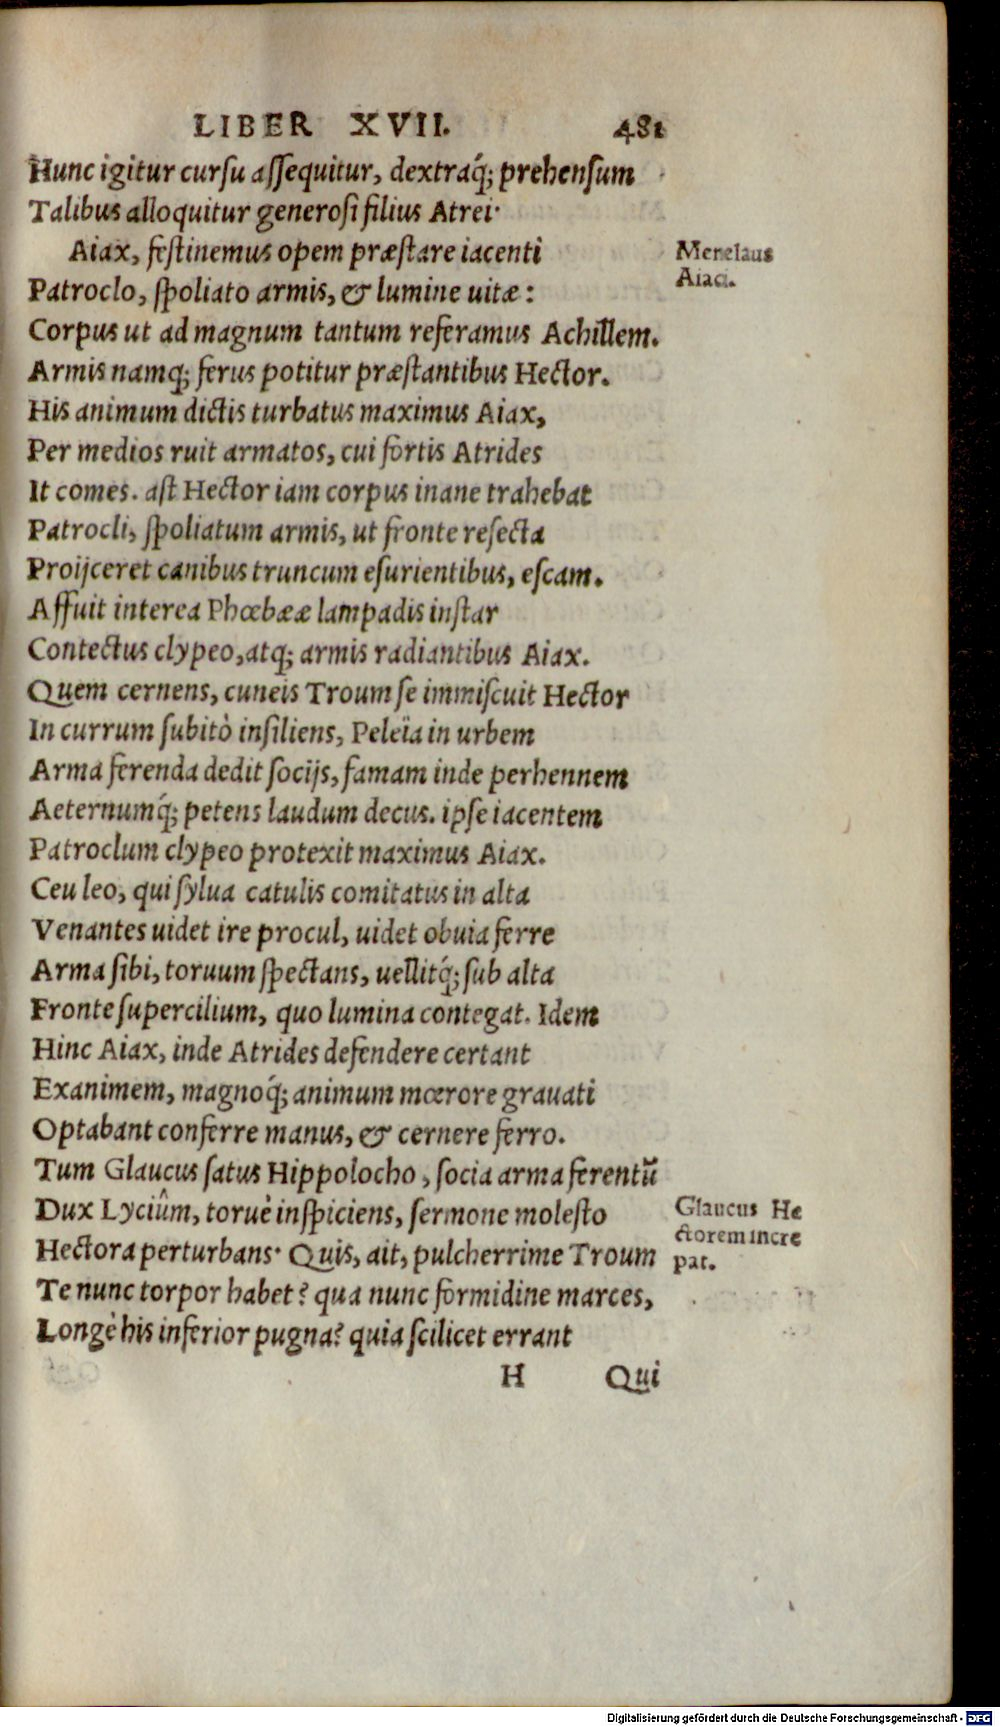 LIBER XVII. 481
Hunc igitur cursu assequitur, dextraq́; prehensum
Talibus alloquitur generosi filius Atrei·
Aiax, festinemus opem præstare iacenti
Menelaus
Aiaci.
Patroclo, spoliato armis, & lumine uitæ:
Corpus ut ad magnum tantum referamus Achillem.
Armis namq; ferus potitur præstantibus Hector.
His animum dictis turbatus maximus Aiax,
Per medios ruit armatos, cui fortis Atrides
It comes. ast Hector iam corpus inane trahebat
Patrocli, spoliatum armis, ut fronte resecta
Proijceret canibus truncum esurientibus, escam.
Affuit interea Phœbææ lampadis instar
Contectus clypeo, atq; armis radiantibus Aiax.
Quem cernens, cuneis Troum se immiscuit Hector
In currum subitò insiliens, Peleïa in urbem
Arma ferenda dedit socijs, famam inde perhennem
Aeternumq́; petens laudum decus. ipse iacentem
Patroclum clypeo protexit maximus Aiax.
Ceu leo, qui sylua catulis comitatus in alta
Venantes uidet ire procul, uidet obuia ferre
Arma sibi, toruum spectans, uellitq́; sub alta
Fronte supercilium, quo lumina contegat. Idem
Hinc Aiax, inde Atrides defendere certant
Exanimem, magnoq́; animum mœrore grauati
Optabant conferre manus, & cernere ferro.
Tum Glaucus satus Hippolocho, socia arma ferentũ
Dux Lyciûm, toruè inspiciens, sermone molesto
Glaucus He
ctorem incre
pat.
Hectora perturbans· Quis, ait, pulcherrime Troum
Te nunc torpor habet? qua nunc formidine marces,
Longè his inferior pugna? quia scilicet errant
H Qui
Digitalisierung gefördert durch die Deutsche Forschungsgemeinschaft - DFG